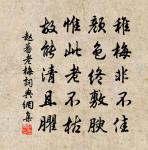 稚梅非不佳
顏色終敷腴
惟此老不枯
故能清且臞
趙蕃老梅詞典網集